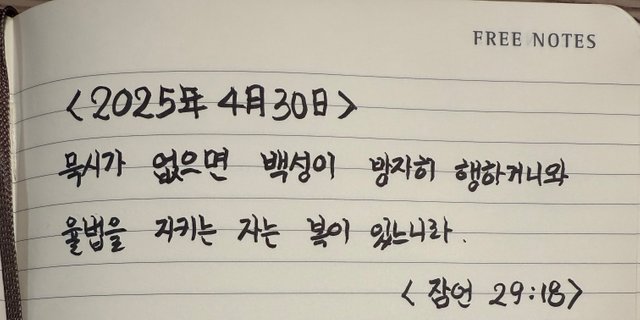 FREE NOTES
<2025年 4月 30日>
묵시가 없으면 백성이 방자히 행하거니와
율법을 지키는 자는 복이 있느니라.
<잠언 29:18>